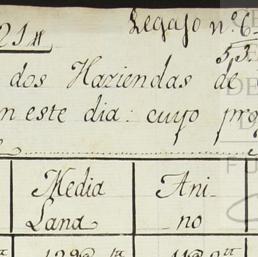 21#
Legajo nº 6
5,3
dos Haziendas de
n este dia: cuyo pro
Media
Lana
Ani-
no